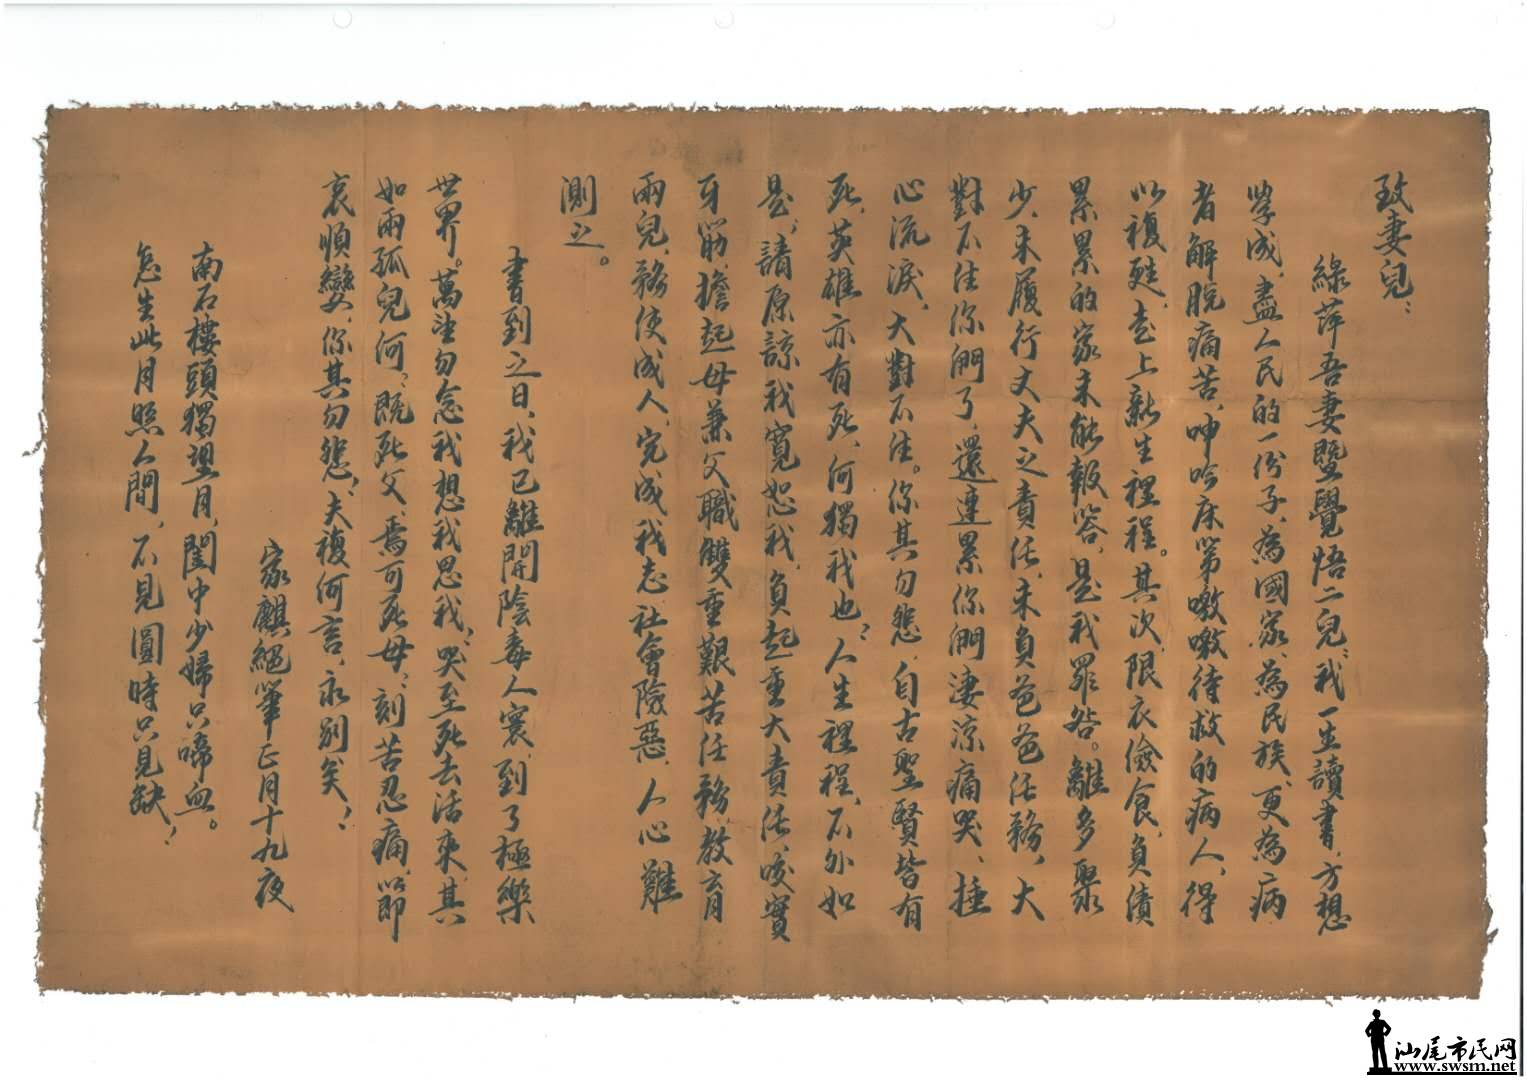 致妻兒：
綠萍吾妻暨覺悟二兒：我一生讀書，方想
學成，盡人民的一份子，為國家、為民族、更為病
者解脫痛苦，呻吟床第，嗷嗷待救的病人，得
以複甦，走上新生裡程。其次，限衣儉食，負債
累累的家未能報答，是我罪咎。離多聚
少，未履行丈夫之責任，未負爸爸任務，大
對不住你們了，還連累你們淒涼痛哭、捶
心流淚，大對不住。你其勿悲，自古聖賢皆有
死，英雄亦有死，何獨我也？人生裡程，不外如
是，請原諒我寬恕我，負起重大責任，咬實
牙筋，擔起母兼父職雙重艱苦任務，教育
兩兒，務使成人，完成我志，社會險惡，人心難
測之。
書到之日，我已離開陰毒人寰，到了極樂
世界。萬望勿念我想我思我，哭至死去活來，其
如兩孤兒何，既死父，焉可死母，刻苦忍痛，以即
哀順變，你其勿悲，夫複何言，永別矣！
家麒絕筆正月十九夜
南石樓頭獨望月，閨中少婦只啼血。
怎生此月照人間，不見圓時只見缺！
汕尾市民网
www.swsm.net